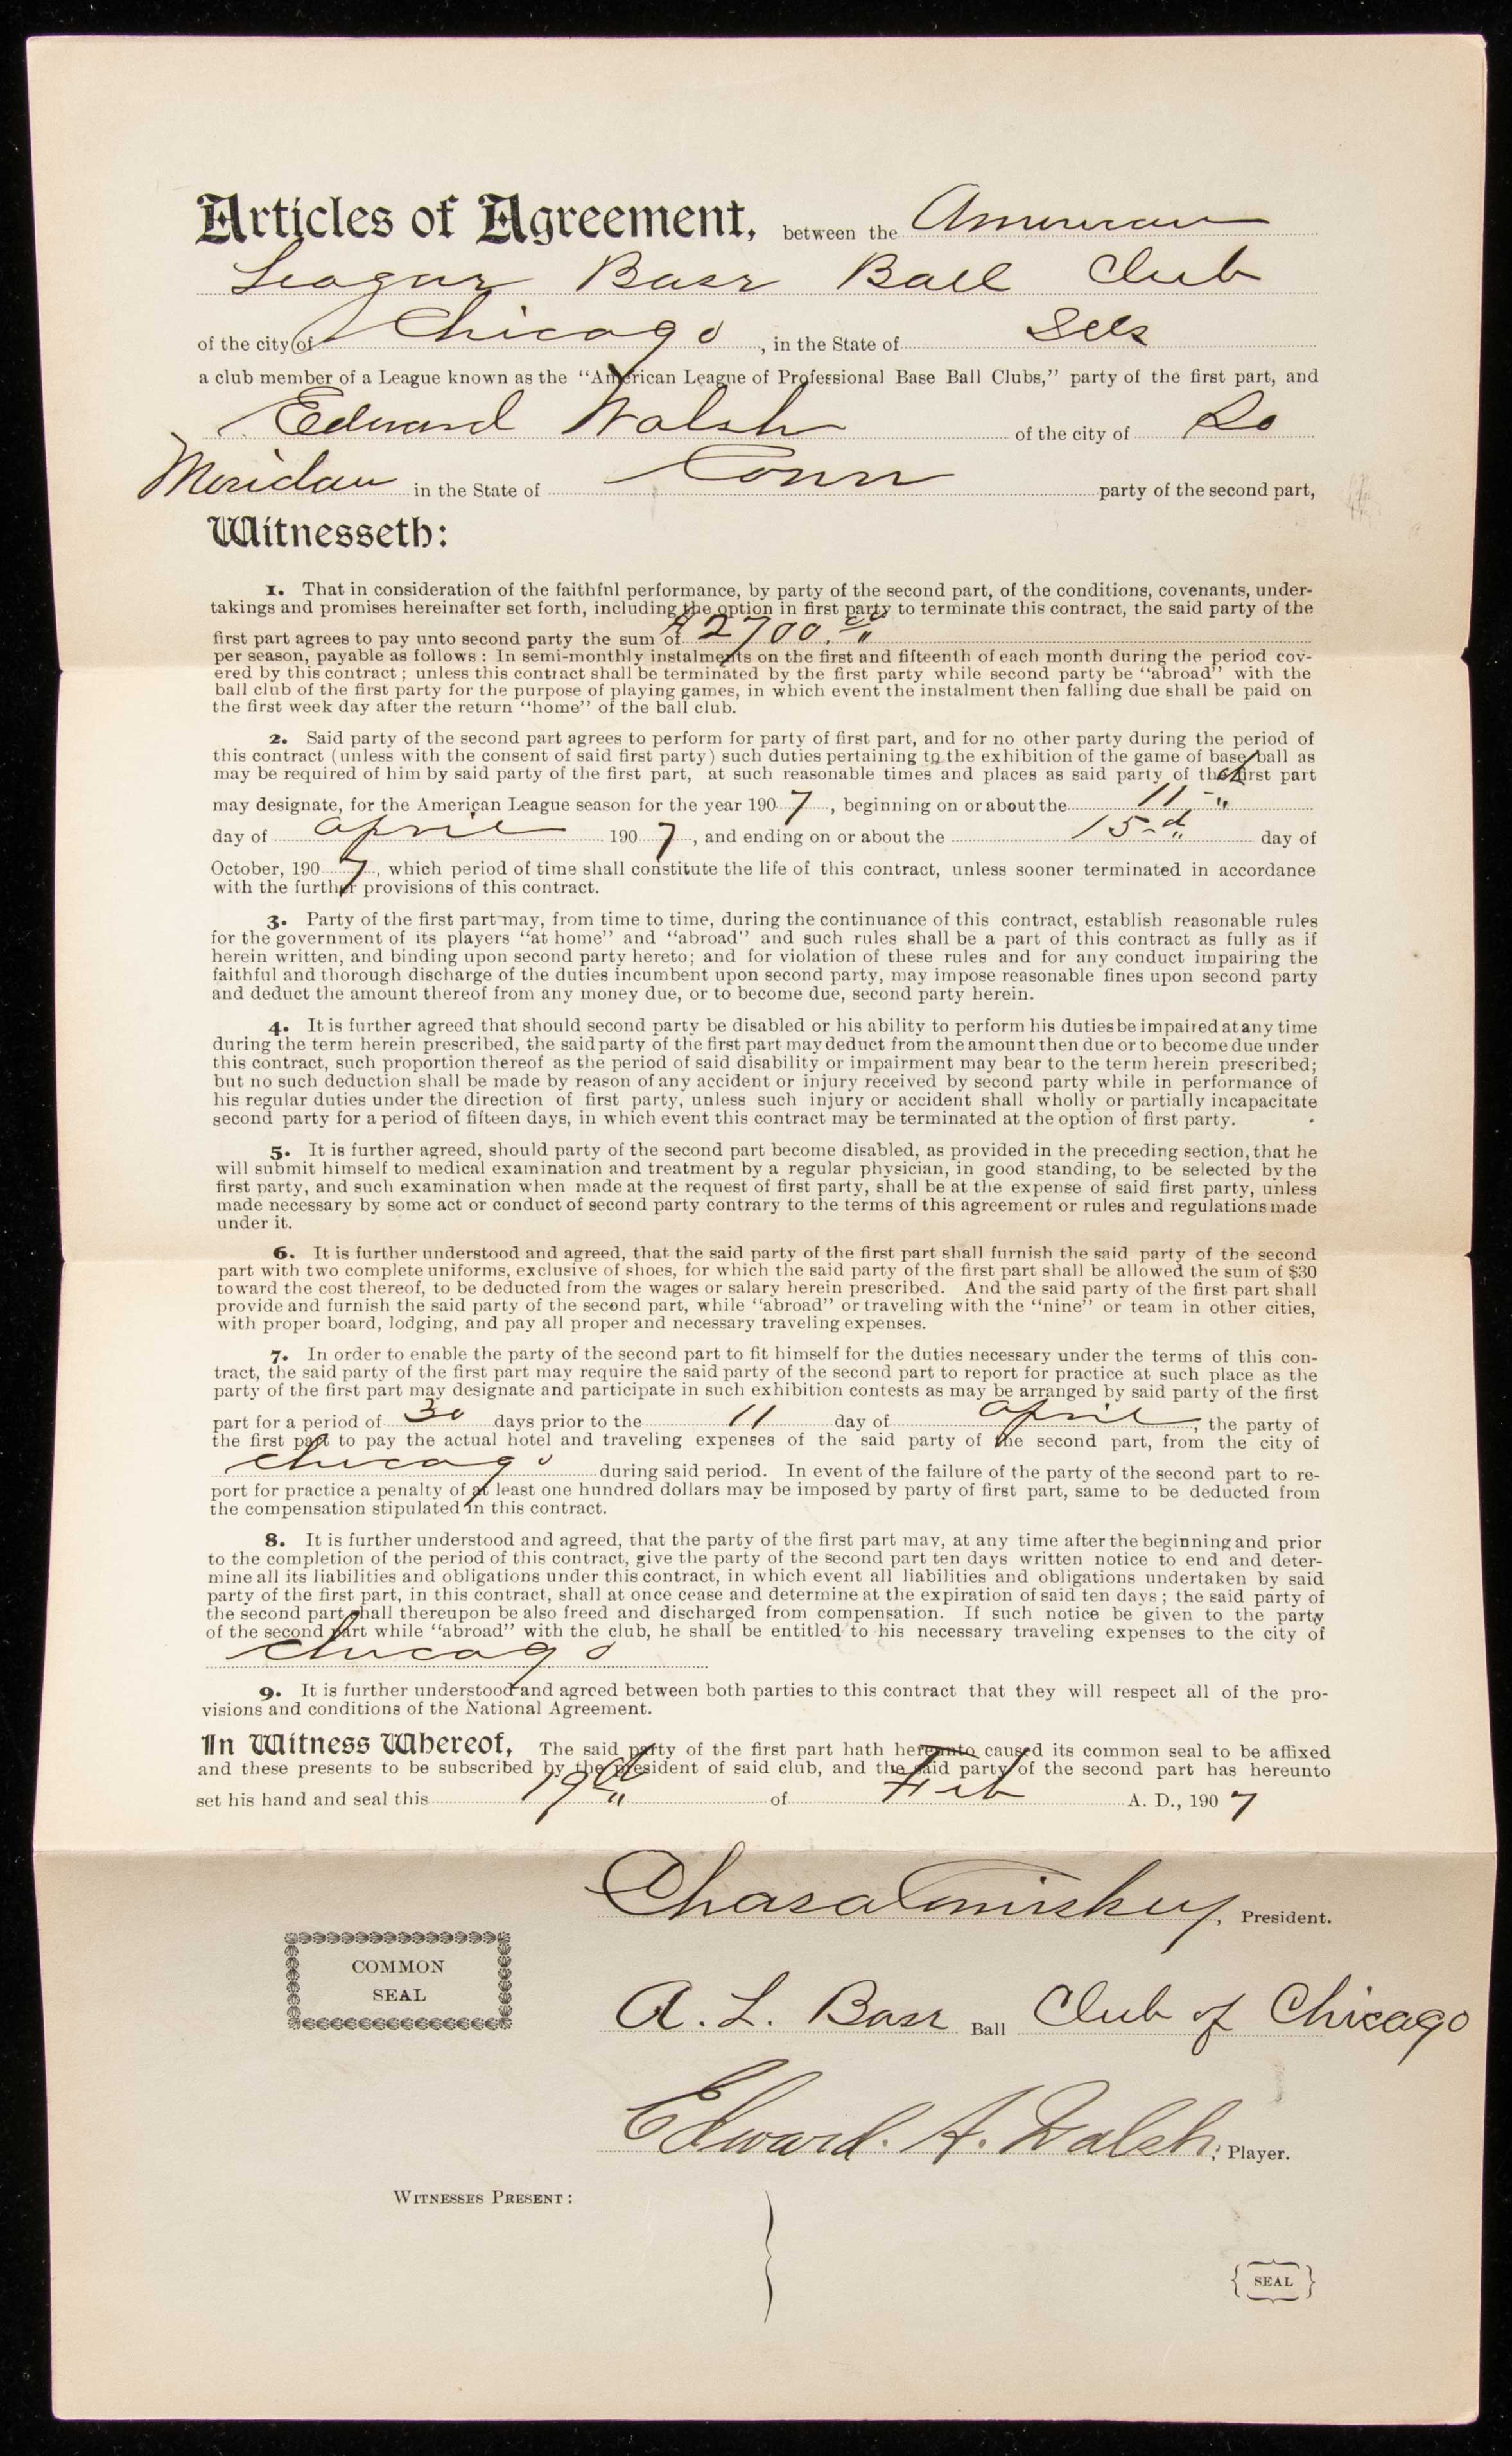 Articles of Agreement, between the American
League Base Ball Club
of the city of Chicago, in the State of Ills
a club member of a League known as the “American League of Professional Base Ball Clubs,” party of the first part, and
Edward Walsh of the city of So
Meridan in the State of Conn party of the second part,
Witnesseth:
1. That in consideration of the faithful performance, by party of the second part, of the conditions, covenants, under-
takings and promises hereinafter set forth, including the option in first party to terminate this contract, the said party of the
first part agrees to pay unto second party the sum of $2700.00
per season, payable as follows: In semi-monthly instalments on the first and fifteenth of each month during the period cov-
ered by this contract; unless this contract shall be terminated by the first party while second party be “abroad” with the
ball club of the first party for the purpose of playing games, in which event the instalment then falling due shall be paid on
the first week day after the return “home” of the ball club.
2. Said party of the second part agrees to perform for party of first part, and for no other party during the period of
this contract (unless with the consent of said first party) such duties pertaining to the exhibition of the game of base ball as
may be required of him by said party of the first part, at such reasonable times and places as said party of the first part
may designate, for the American League season for the year 1907, beginning on or about the 11th
day of April 1907, and ending on or about the 15th day of
October, 1907, which period of time shall constitute the life of this contract, unless sooner terminated in accordance
with the further provisions of this contract.
3. Party of the first part may, from time to time, during the continuance of this contract, establish reasonable rules
for the government of its players “at home” and “abroad” and such rules shall be a part of this contract as fully as if
herein written, and binding upon second party hereto; and for violation of these rules and for any conduct impairing the
faithful and thorough discharge of the duties incumbent upon second party, may impose reasonable fines upon second party
and deduct the amount thereof from any money due, or to become due, second party herein.
4. It is further agreed that should second party be disabled or his ability to perform his duties be impaired at any time
during the term herein prescribed, the said party of the first part may deduct from the amount then due or to become due under
this contract, such proportion thereof as the period of said disability or impairment may bear to the term herein prescribed;
but no such deduction shall be made by reason of any accident or injury received by second party while in performance of
his regular duties under the direction of first party, unless such injury or accident shall wholly or partially incapacitate
second party for a period of fifteen days, in which event this contract may be terminated at the option of first party.
5. It is further agreed, should party of the second part become disabled, as provided in the preceding section, that he
will submit himself to medical examination and treatment by a regular physician, in good standing, to be selected by the
first party, and such examination when made at the request of first party, shall be at the expense of said first party, unless
made necessary by some act or conduct of second party contrary to the terms of this agreement or rules and regulations made
under it.
6. It is further understood and agreed, that the said party of the first part shall furnish the said party of the second
part with two complete uniforms, exclusive of shoes, for which the said party of the first part shall be allowed the sum of $30
toward the cost thereof, to be deducted from the wages or salary herein prescribed. And the said party of the first part shall
provide and furnish the said party of the second part, while “abroad” or traveling with the “nine” or team in other cities,
with proper board, lodging, and pay all proper and necessary traveling expenses.
7. In order to enable the party of the second part to fit himself for the duties necessary under the terms of this con-
tract, the said party of the first part may require the said party of the second part to report for practice at such place as the
party of the first part may designate and participate in such exhibition contests as may be arranged by said party of the first
part for a period of 30 days prior to the 11 day of April, the party of
the first part to pay the actual hotel and traveling expenses of the said party of the second part, from the city of
Chicago during said period. In event of the failure of the party of the second part to re-
port for practice a penalty of at least one hundred dollars may be imposed by party of first part, same to be deducted from
the compensation stipulated in this contract.
8. It is further understood and agreed, that the party of the first part may, at any time after the beginning and prior
to the completion of the period of this contract, give the party of the second part ten days written notice to end and deter-
mine all its liabilities and obligations under this contract, in which event all liabilities and obligations undertaken by said
party of the first part, in this contract, shall at once cease and determine at the expiration of said ten days; the said party of
the second part shall thereupon be also freed and discharged from compensation. If such notice be given to the party
of the second part while “abroad” with the club, he shall be entitled to his necessary traveling expenses to the city of
Chicago
9. It is further understood and agreed between both parties to this contract that they will respect all of the pro-
visions and conditions of the National Agreement.
In Witness Whereof, The said party of the first part hath hereunto caused its common seal to be affixed
and these presents to be subscribed by the president of said club, and the said party of the second part has hereunto
set his hand and seal this 19th of Feb A. D., 1907
Chas a Comiskey, President.
COMMON
SEAL
A. L. Base Ball Club of Chicago
Edward. A. Walsh, Player.
WITNESSES PRESENT:
SEAL